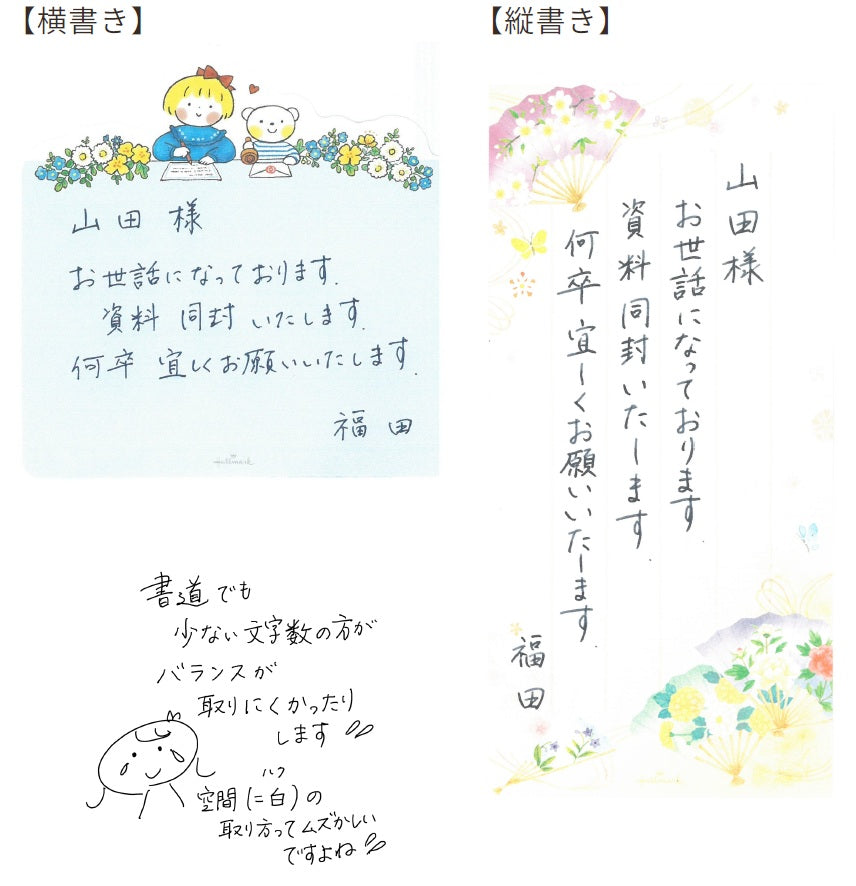 【横書き】
山田 様
お世話になっております.
資料 同封 いたします.
何卒 宜しくお願いいたします.
福田
Hallmark
【縦書き】
山田様
お世話になっております
資料同封いたします.
何卒宜しくお願いいたします.
福田
Hallmark
書道でも
少ない文字数の方が
バランスが
取りにくかったり
します
ハク
空間(=白)の
取り方ってムズかしい
ですよね